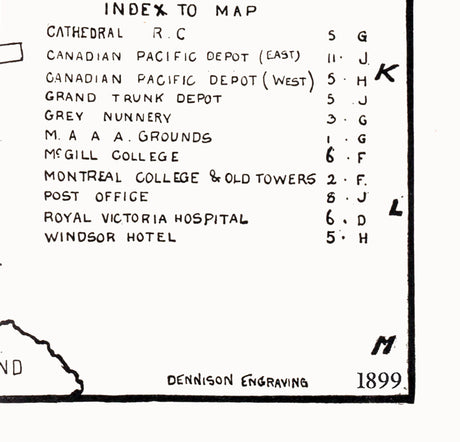 INDEX TO MAP
CATHEDRAL R.C 5 G
CANADIAN PACIFIC DEPOT (EAST) 11 · J.
CANADIAN PACIFIC DEPOT (WEST) 5 · H
K
GRAND TRUNK DEPOT 5 J
GREY NUNNERY 3 · G
M. A A A. GROUNDS 1 · G
McGILL COLLEGE 6 · F
MONTREAL COLLEGE & OLD TOWERS 2 · F.
POST OFFICE 8 · J
L
ROYAL VICTORIA HOSPITAL 6 . D
WINDSOR HOTEL 5 · H
M
ND
DENNISON ENGRAVING 1899